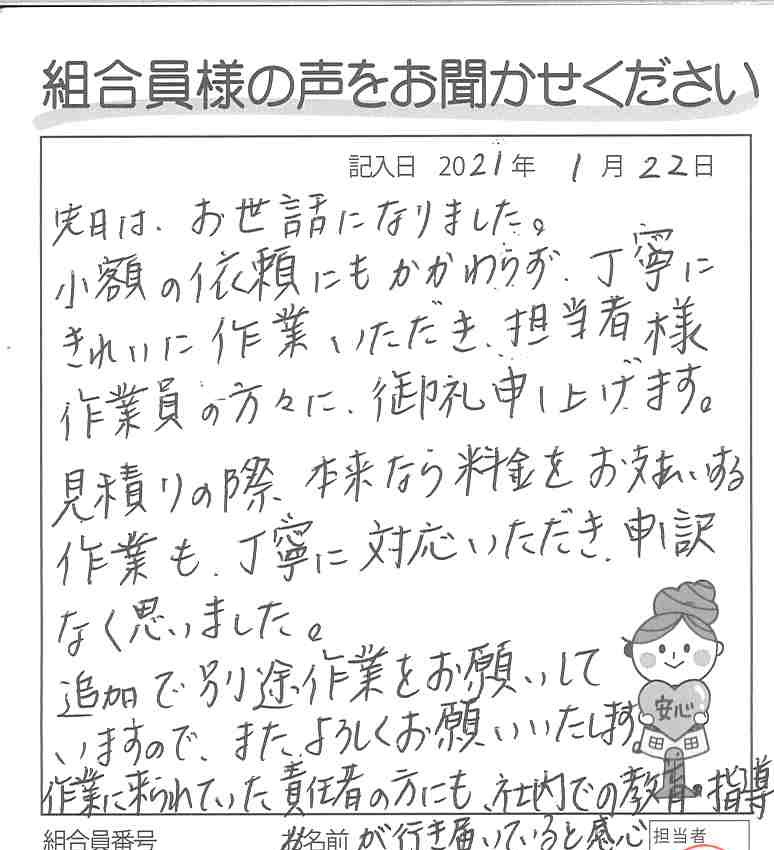 組合員様の声をお聞かせください
記入日 2021年 1月22日
先日は、お世話になりました。
小額の依頼にもかかわらず、丁寧に
きれいに作業いただき、担当者様
作業員の方々に、御礼申し上げます。
見積りの際、本来なら料金をお支払いする
作業も、丁寧に対応いただき、申し訳
なく思いました。
追加で別途作業をお願いして
いますので、また、よろしくお願いいたします。
安心
作業に来られていた責任者の方にも、社内での教育、指導
が行き届いていると感心
組合員番号
お名前
担当者